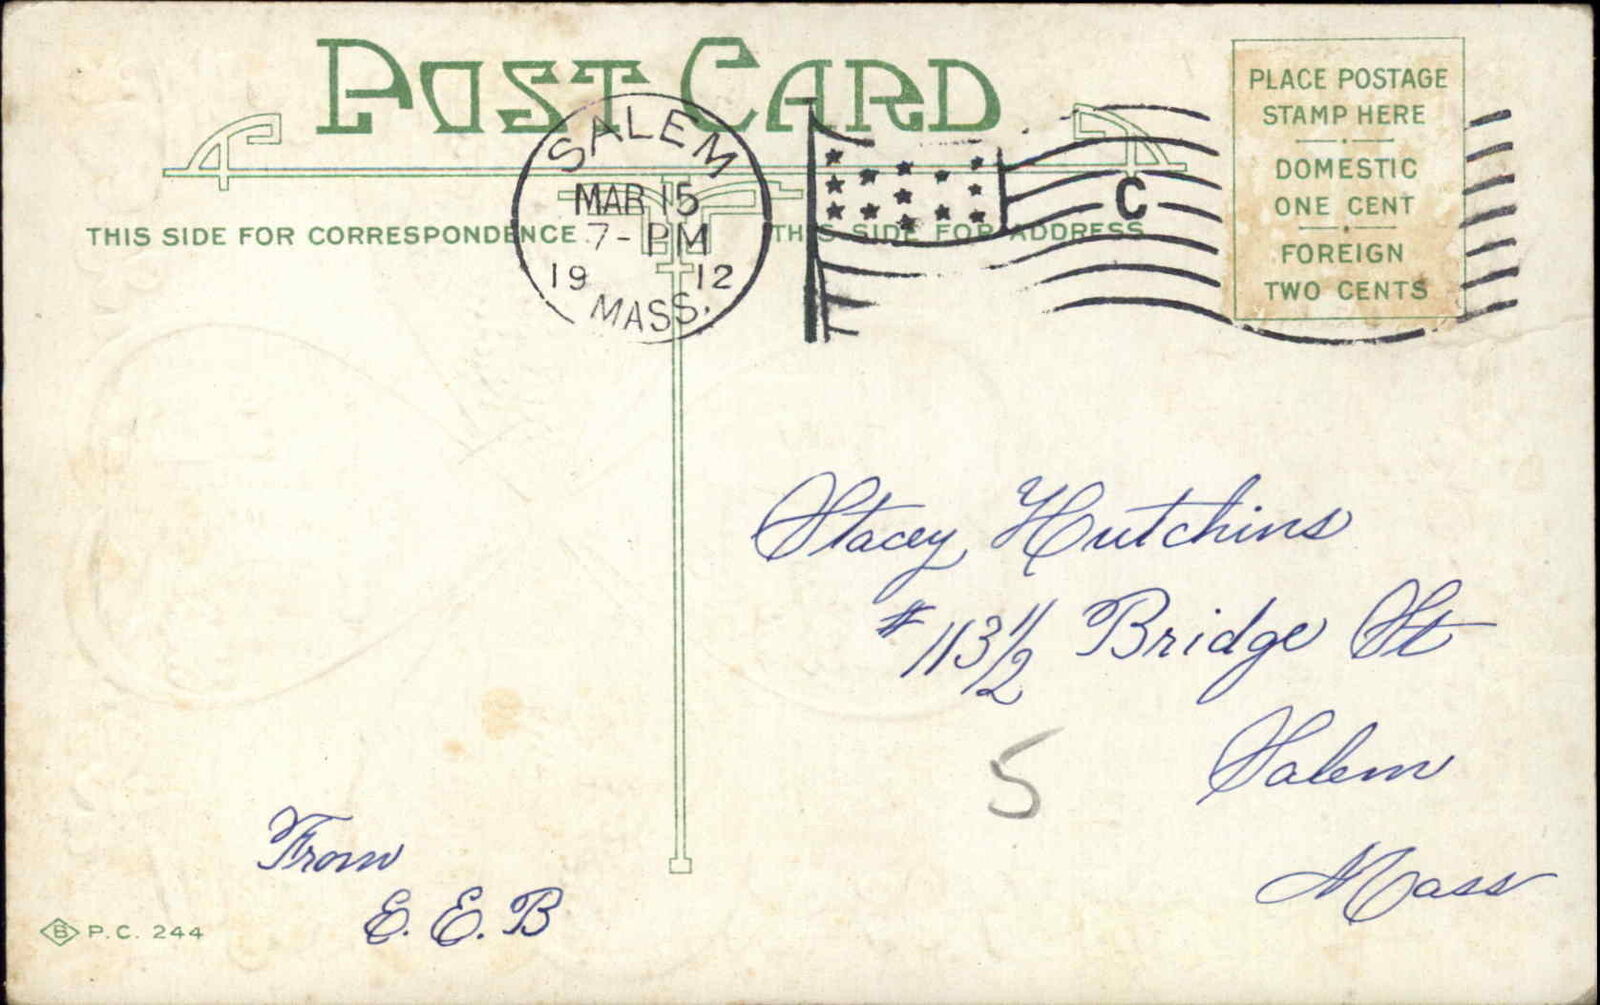 POST CARD
SALEM
MAR 15
7- PM
19 12
MASS.
C
PLACE POSTAGE
STAMP HERE
DOMESTIC
ONE CENT
FOREIGN
TWO CENTS
THIS SIDE FOR CORRESPONDENCE
THIS SIDE FOR ADDRESS
Stacey Hutchins
# 113 1/2 Bridge St
Salem
Mass
5
From
E. E. B
B P.C. 244